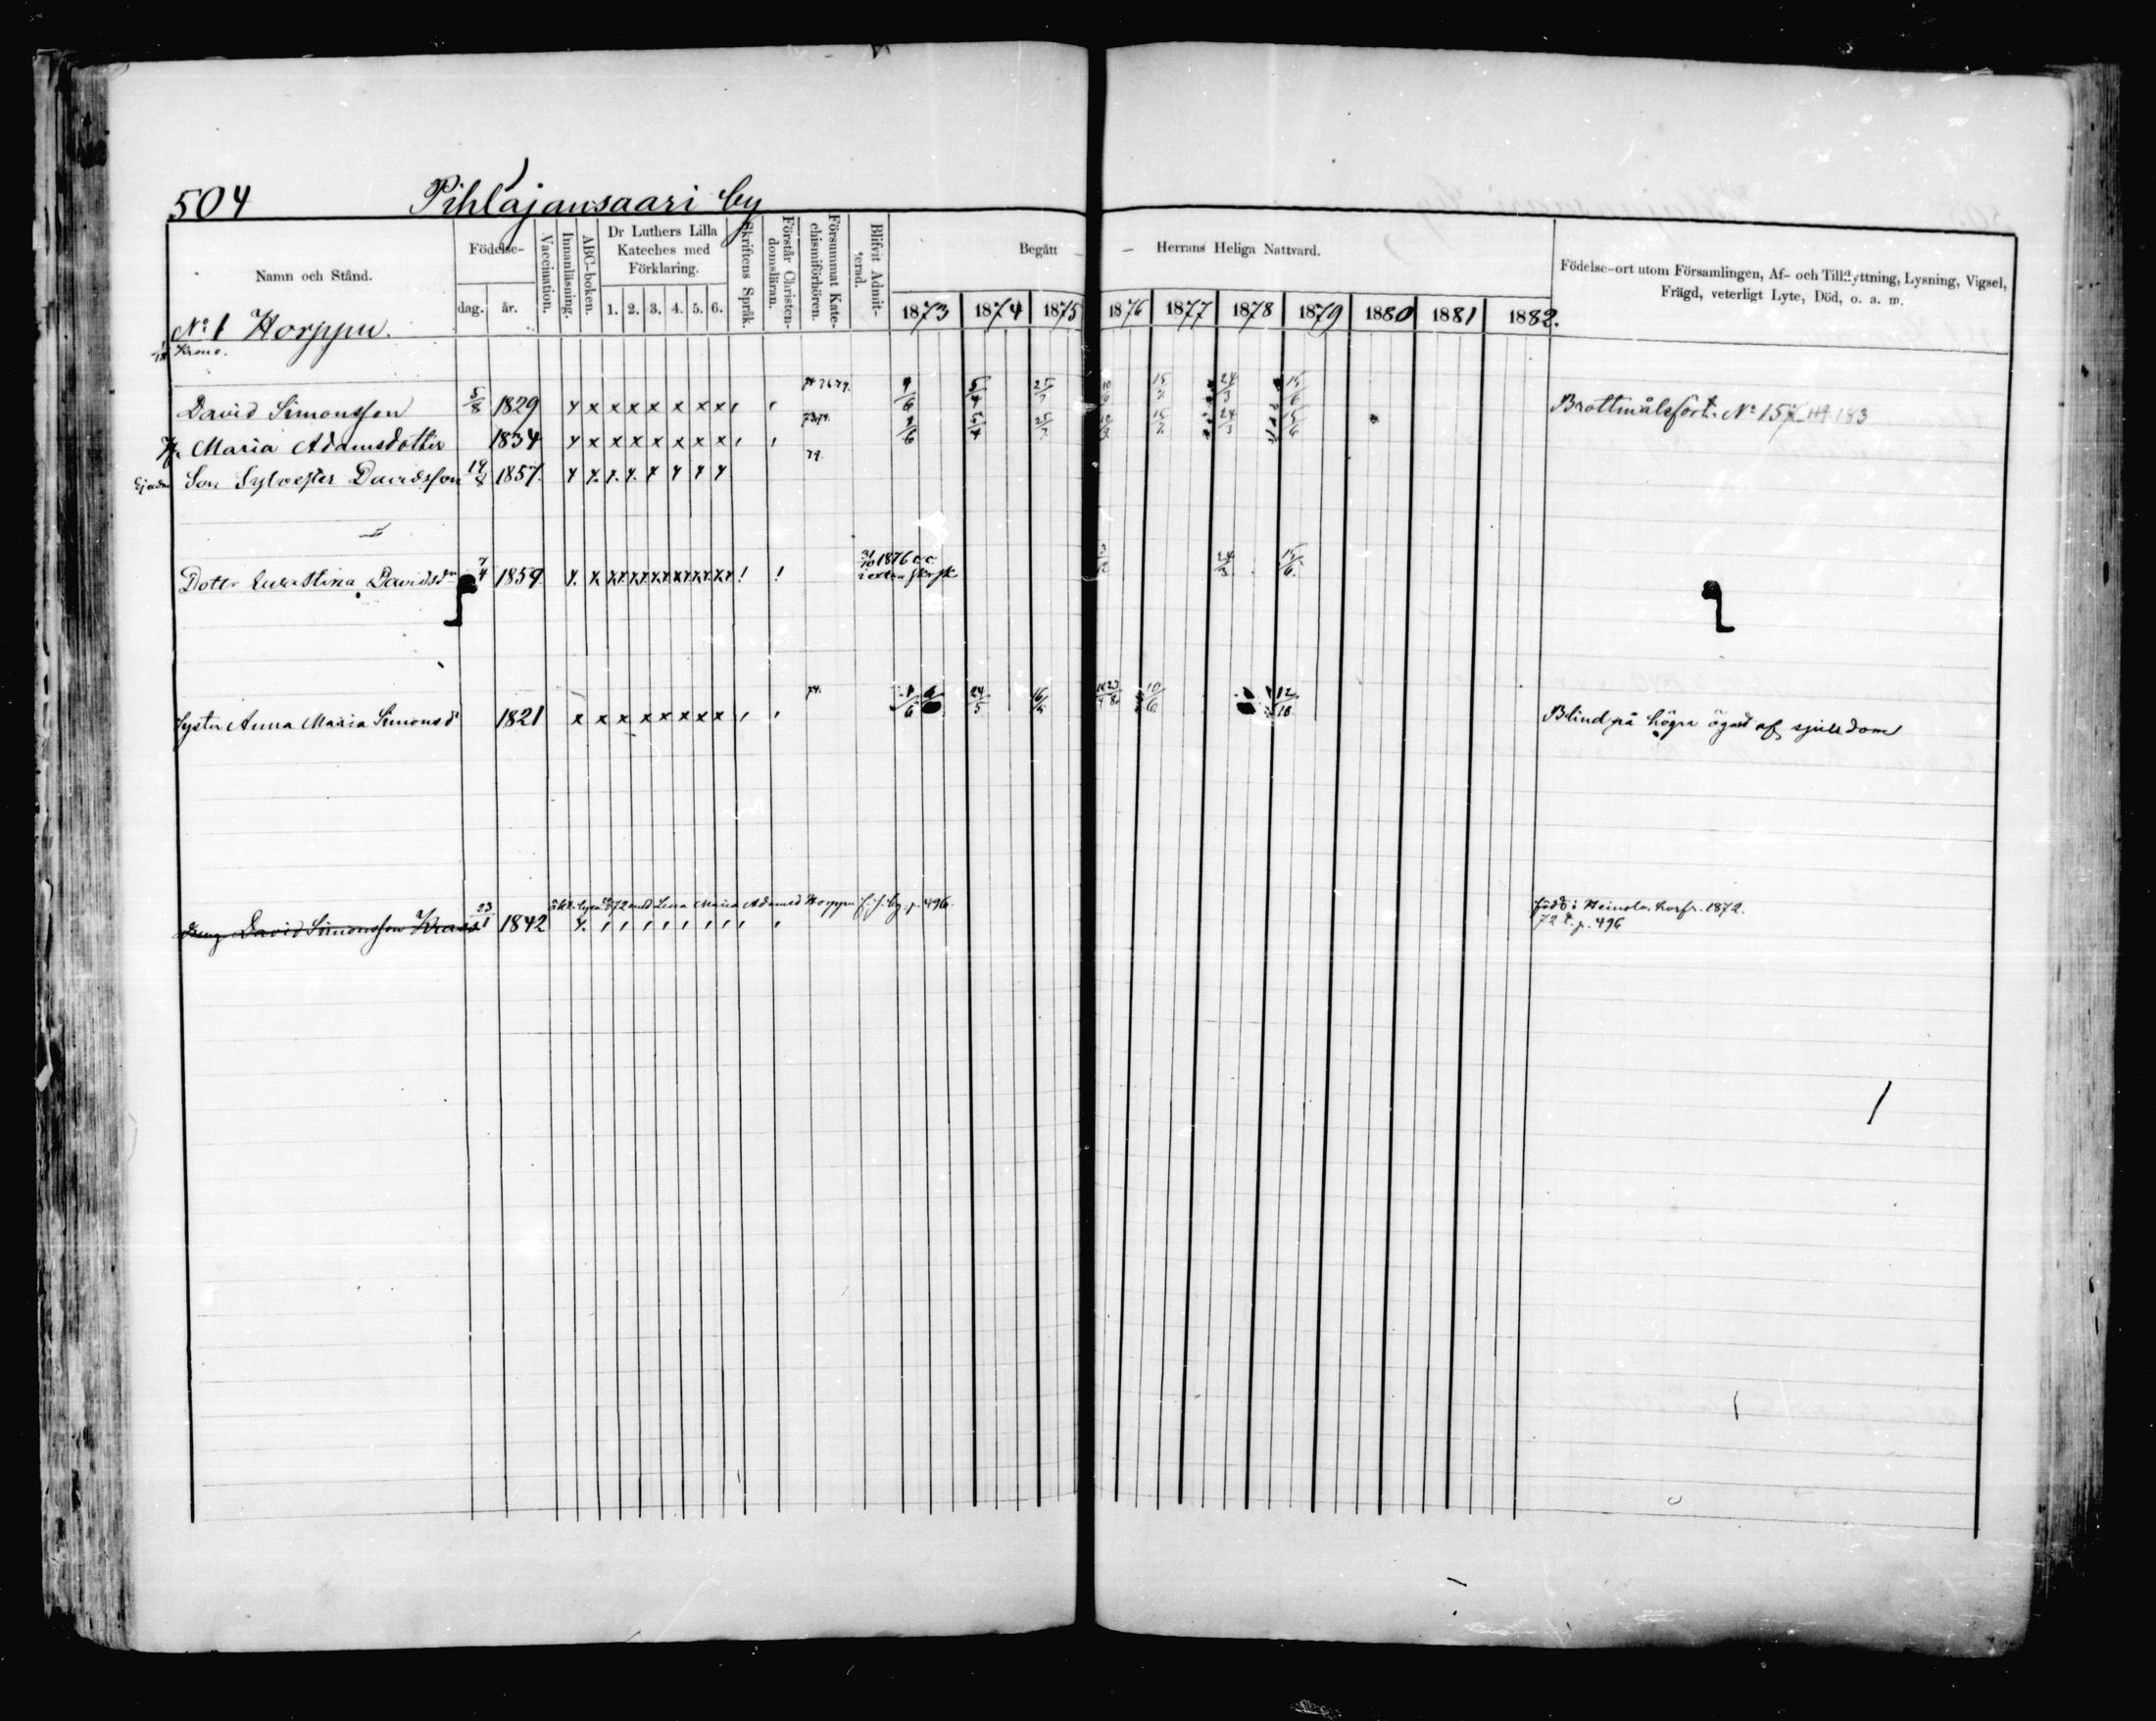 504 Pihlajansaari by
Namn och Stånd.
Födelse-
dag. år.
Vaccination.
Innanläsning.
ABC-boken.
Dr Luthers Lilla
Kateches med
Förklaring.
1. 2. 3. 4. 5. 6.
Skriftens Språk.
Förstår Christen-
domsläran.
Försummat Kate-
chismiförhören.
Blifvit Admit-
terad.
Begått — Herrans Heliga Nattvard.
1873 1874 1875 1876 1877 1878 1879 1880 1881 1882.
Födelse-ort utom Församlingen, Af- och Tillflyttning, Lysning, Vigsel,
Frägd, veterligt Lyte, Död, o. a. m.
No 1 Horppu.
Krono.
David Simonsson 5/8 1829 x x x x x x x x 9/6 5/4 25/7 15/7 24/3 15/6 Brottmålsfört. No 157 183
Maria Adamsdotter 1834 x x x x x x x x 73,74. 9/6 5/4 25/7 15/7 24/3 15/6
Son Sylvester Davidsson 19/8 1857. x x x x x x x x 79.
Dotr Eva Stina Davidsdr 7/4 1859 31/10 1876 24/3 15/6
Syster Anna Maria Simonsdr 1821 x x x x x x x x 74. 24/5 10/6 12/10 Blind på högra ögat af sjukdom
Dreng David Simonsson Krans 23/1 1842 72 med Lena Maria Adamsd Horppu f. h. by. p. 496. född i Heinola. 1872.
72 p. 496